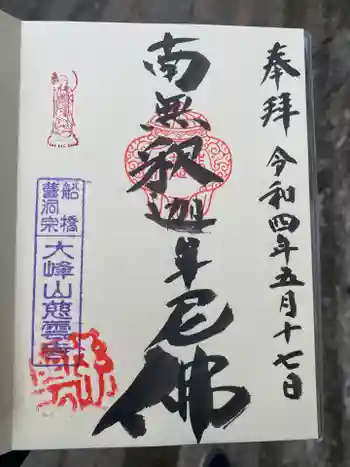 奉拝
令和四年五月十七日
南無釈迦牟尼佛
船橋
曹洞宗
大峰山慈雲寺